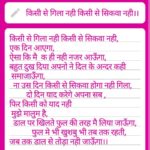 किसी से गिला नही किसी से सिकवा नही।।
किसी से गिला नही किसी से सिकवा नही,
एक दिन आएगा,
ऐसा कि मै क ही नही नजर आऊँगा,
बहुत दुख दिया अपनो ने दिल के अन्दर कही
समाजाऊँगा,
ना उस दिन किसी से सिकवा होगा नही गिला,
दो दिन याद करेगे अपना सब ,
फिर किसी को याद नही
मुझे मालुम है,
डाल पर खिलते फुल की तरह मै लिया जाऊँगा,
फुल मे भी खुशबु भी तब तक रहती,
जब तक डाल से तोड़ा नही जाता।।